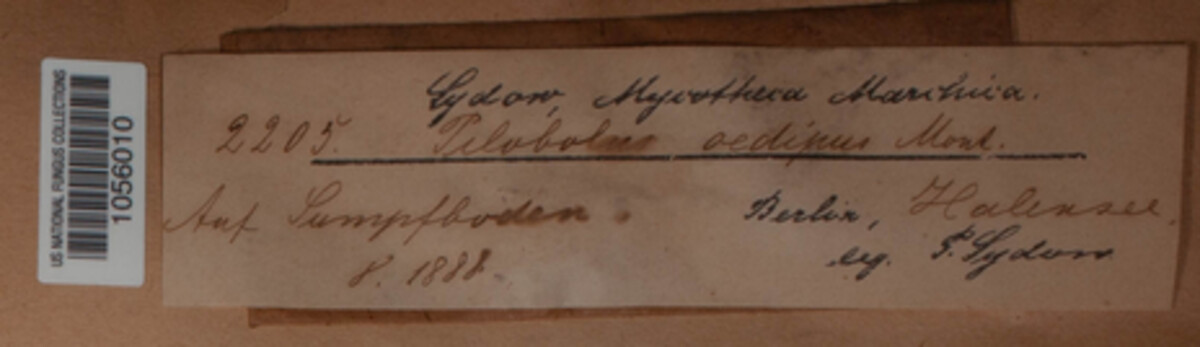 US NATIONAL FUNGUS COLLECTIONS
1056010
Sydow, Mycotheca Marchica.
2205. Pilobolus oedipus Mont.
Auf Sumpfboden. Berlin, Halensee.
8. 1888 leg. P. Sydow